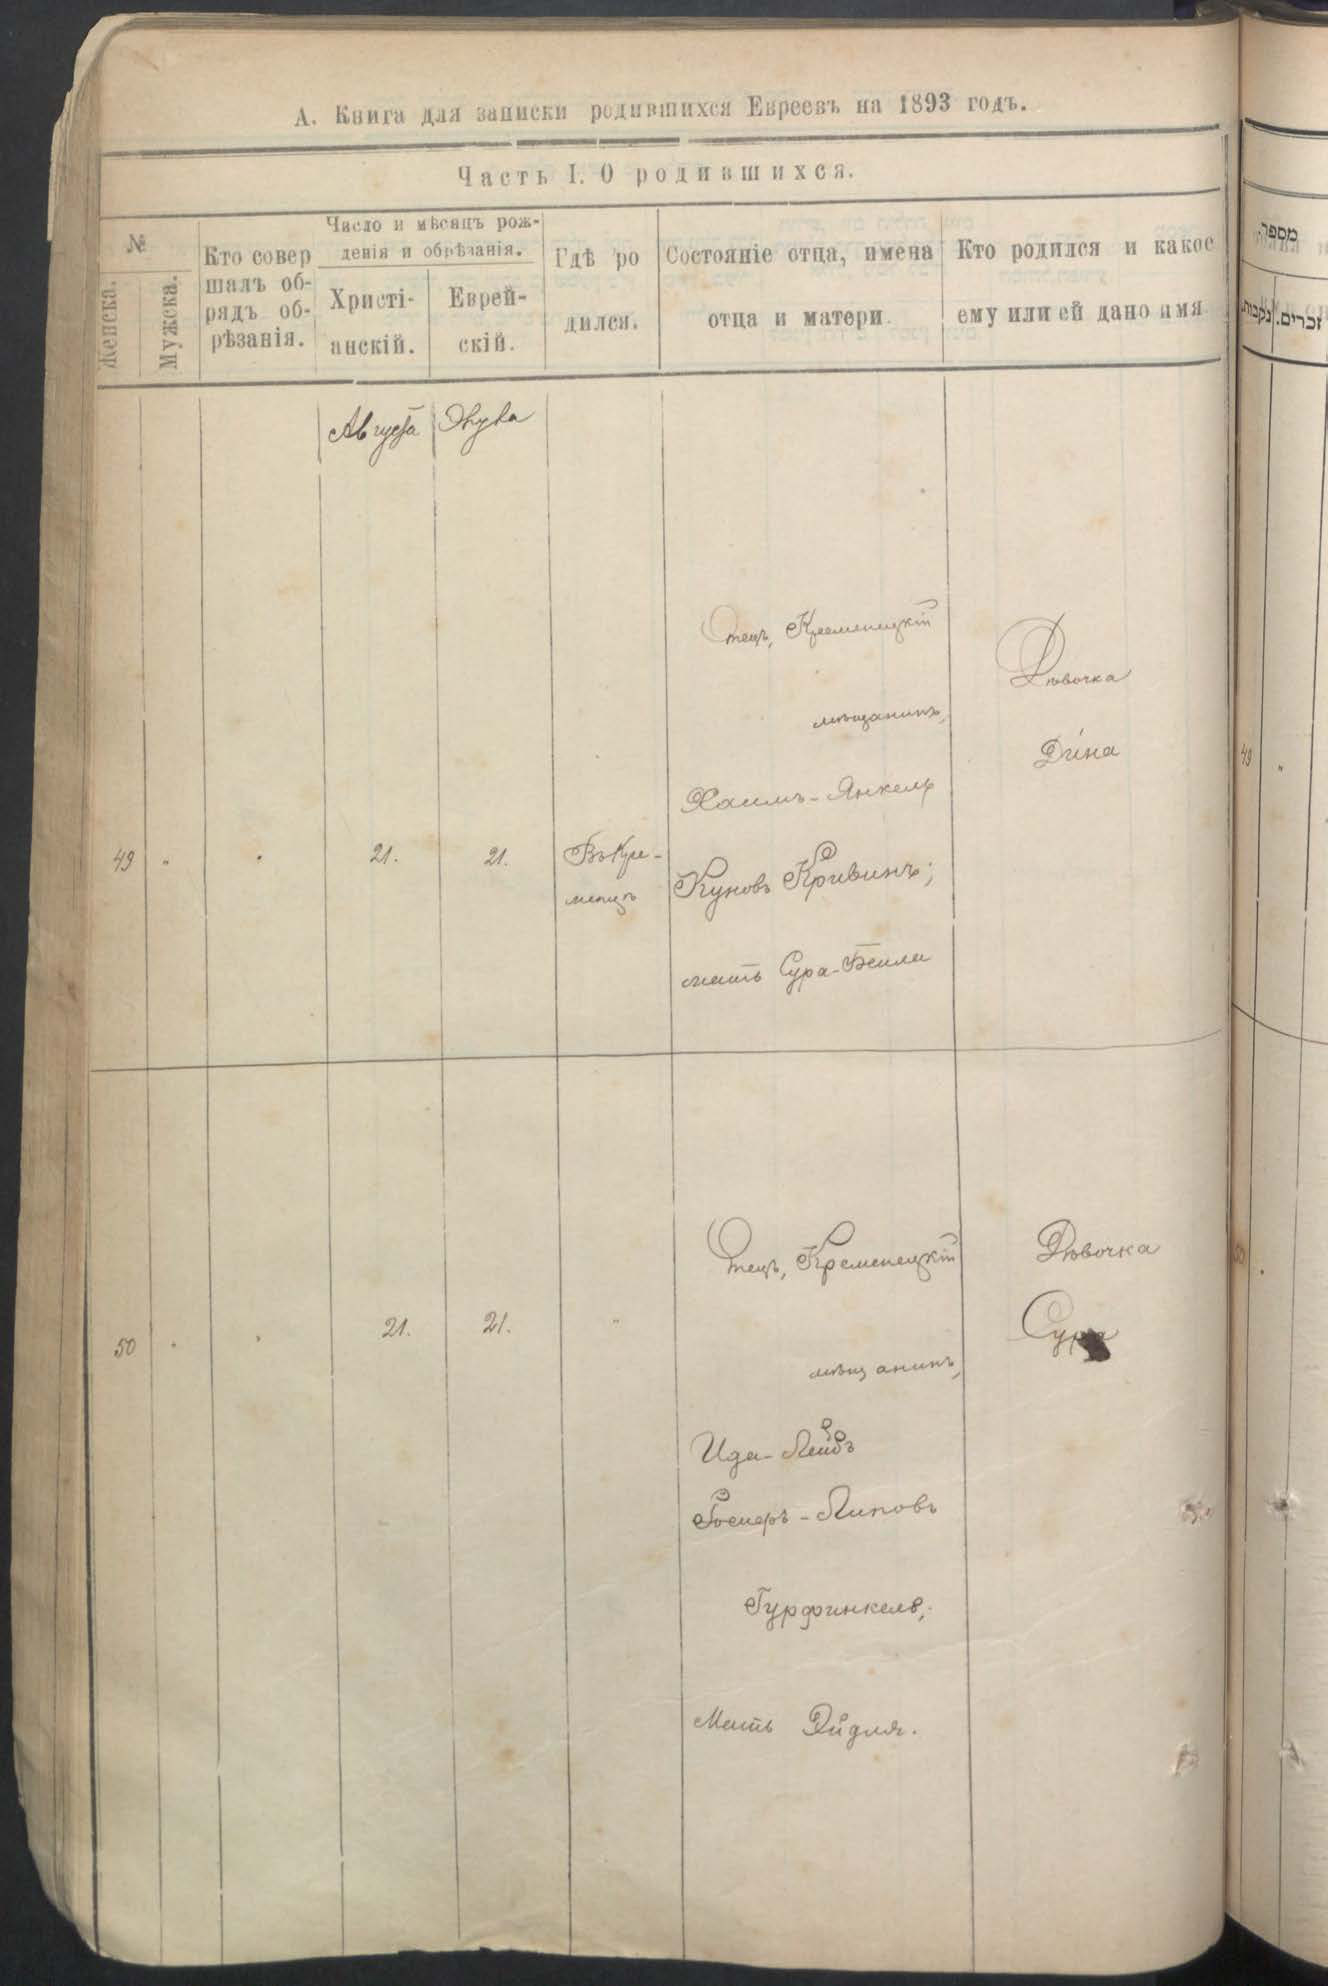 А. Книга для записки родившихся Евреевъ на 1893 годъ.
Часть I. О родившихся.
№
Женска.
Мужска.
Кто совер
шалъ об-
рядъ об-
рѣзанія.
Число и мѣсяцъ рож-
денія и обрѣзанія.
Христі-
анскій.
Еврей-
скій.
Гдѣ ро
дился.
Состояніе отца, имена
отца и матери.
Кто родился и какое
ему или ей дано имя
Августа
49
"
"
21.
21.
Въ Кре-
менцѣ
Отецъ, Кременецкій
мѣщанинъ,
Хаимъ-Янкель
Куновъ Кривинъ;
мать Сура-Бейла
Дѣвочка
Дина
50
"
"
21.
21.
"
Отецъ, Кременецкій
мѣщанинъ,
Ида-Лейбъ
Липовъ
Гурфинкель;
Мать Эйдля.
Дѣвочка
Сура
מספר.
נקבות.
זכרים.
49
"
50